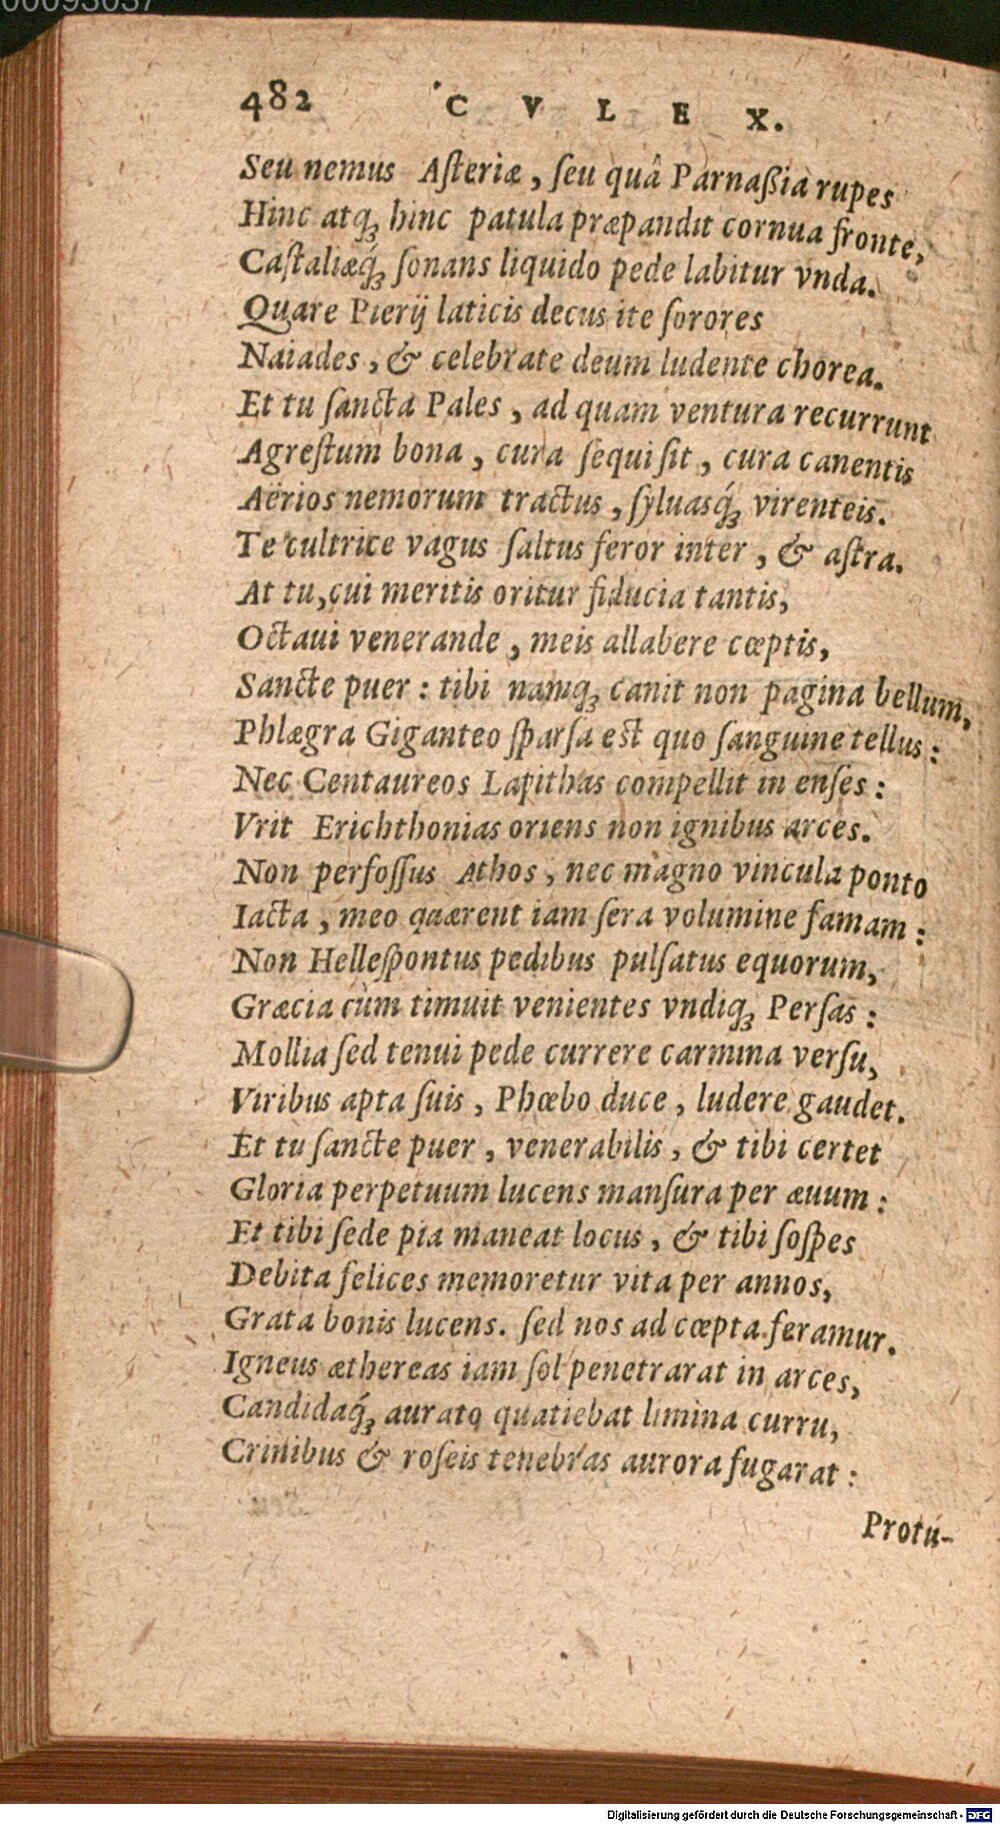 00093037
482 CVLEX.
Seu nemus Aſteriæ, ſeu quâ Parnaßia rupes
Hinc atq; hinc patula præpandit cornua fronte,
Caſtaliæq́; ſonans liquido pede labitur vnda.
Quare Pierij laticis decus ite ſorores
Naiades, & celebrate deum ludente chorea.
Et tu ſancta Pales, ad quam ventura recurrunt
Agreſtum bona, cura ſequi ſit, cura canentis
Aërios nemorum tractus, ſyluasq́; virenteis.
Te cultrice vagus ſaltus feror inter, & aſtra.
At tu, cui meritis oritur fiducia tantis,
Octaui venerande, meis allabere cœptis,
Sancte puer: tibi namq; canit non pagina bellum,
Phlægra Giganteo ſparſa eſt quo ſanguine tellus:
Nec Centaureos Lapithas compellit in enſes:
Vrit Erichthonias oriens non ignibus arces.
Non perfoſſus Athos, nec magno vincula ponto
Iacta, meo quærent iam ſera volumine famam:
Non Helleſpontus pedibus pulſatus equorum,
Græcia cùm timuit venientes vndiq; Perſas:
Mollia ſed tenui pede currere carmina verſu,
Viribus apta ſuis, Phœbo duce, ludere gaudet.
Et tu ſancte puer, venerabilis, & tibi certet
Gloria perpetuum lucens manſura per æuum:
Et tibi ſede pia maneat locus, & tibi ſoſpes
Debita felices memoretur vita per annos,
Grata bonis lucens. ſed nos ad cœpta feramur.
Igneus æthereas iam ſol penetrarat in arces,
Candidaq́; aurato quatiebat limina curru,
Crinibus & roſeis tenebras aurora fugarat:
Protu-
Digitalisierung gefördert durch die Deutsche Forschungsgemeinschaft - DFG